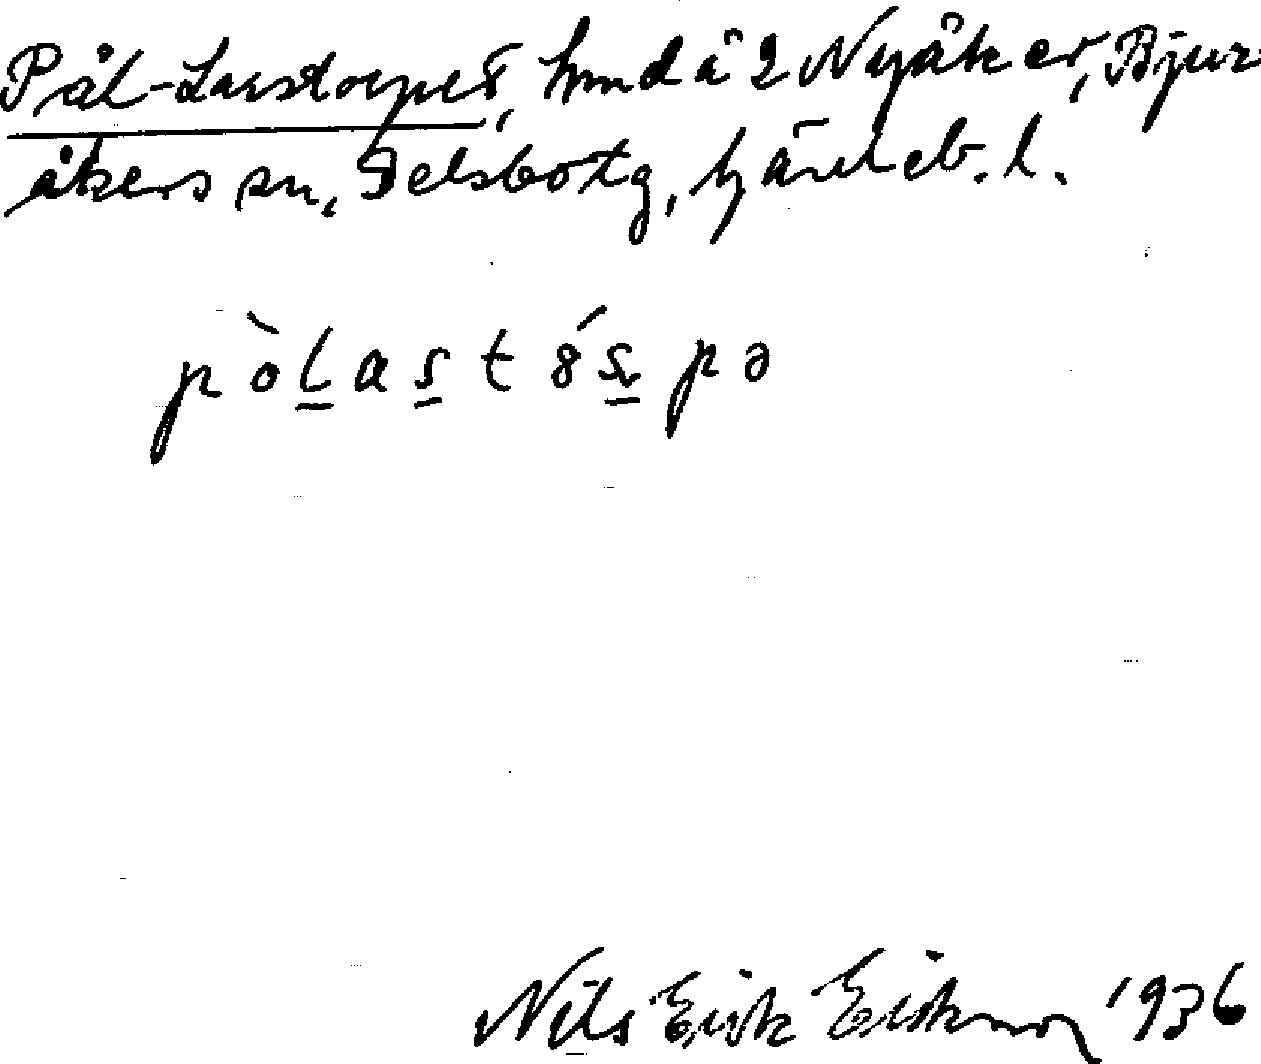 Pål-Larstorpet, hmd å 2 Nyåker, Bjur-
åkers sn, Delsbo tg, Gävleb. l.
pòlastóspə
Nils Erik Eriksson 1936